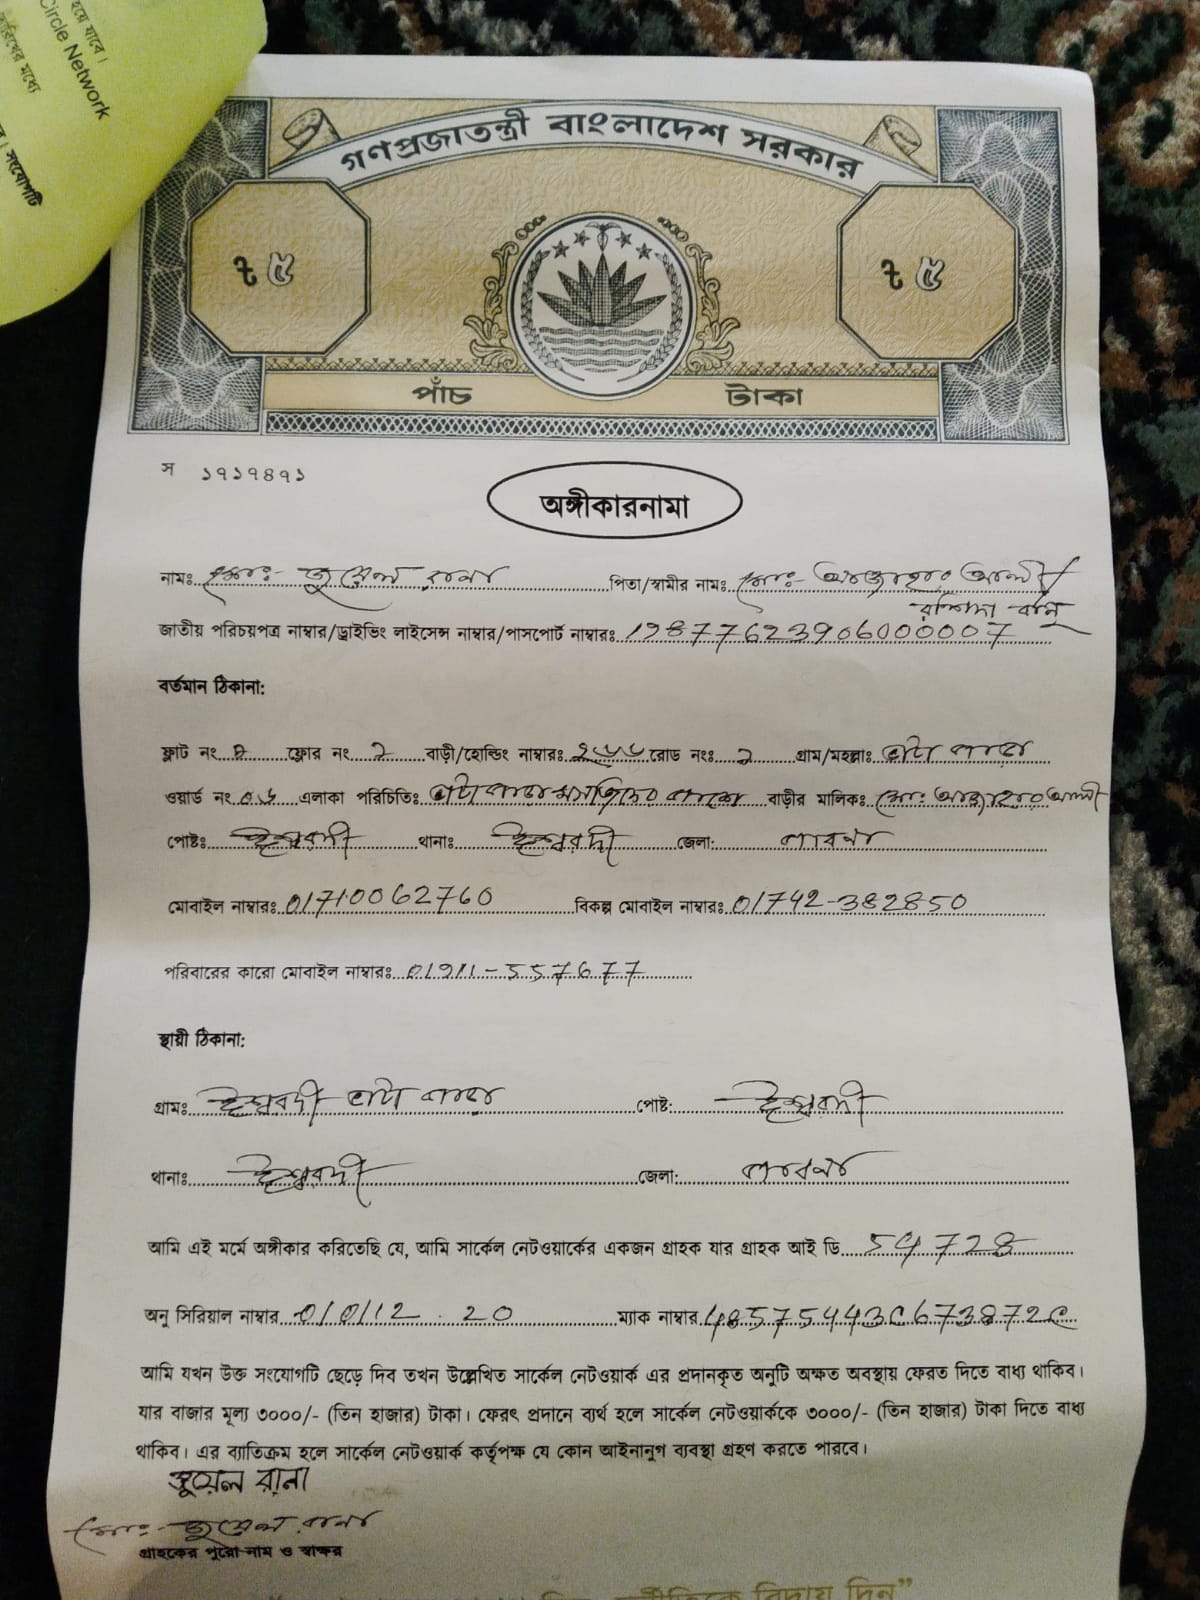 হয়ে যাবে।
Circle Network
তারিখের মধ্যে
সংযোগটি
গণপ্রজাতন্ত্রী বাংলাদেশ সরকার
৳ ৫
৳ ৫
পাঁচ টাকা
স ১৭১৭৪৭১
অঙ্গীকারনামা
নামঃ মোঃ- জুয়েল রানা পিতা/স্বামীর নাম: মোঃ- আজাহার আলী
রশিদা বানু
জাতীয় পরিচয়পত্র নাম্বার/ড্রাইভিং লাইসেন্স নাম্বার/পাসপোর্ট নাম্বারঃ 19877623906000007
বর্তমান ঠিকানা:
ফ্লাট নং ফ্লোর নং ১ বাড়ী/হোল্ডিং নাম্বারঃ ২৬৬ রোড নংঃ ১ গ্রাম/মহল্লাঃ ভাটা পাড়া
ওয়ার্ড নং ০৬ এলাকা পরিচিতিঃ ভাটা পাড়া মসজিদের পাশে বাড়ীর মালিকঃ মোঃ আজাহার আলী
পোষ্টঃ ঈশ্বরদী থানাঃ ঈশ্বরদী জেলা: পাবনা
মোবাইল নাম্বারঃ 01710062760 বিকল্প মোবাইল নাম্বারঃ 01742-382850
পরিবারের কারো মোবাইল নাম্বারঃ 01911-557677
স্থায়ী ঠিকানা:
গ্রামঃ ঈশ্বরদী ভাটা পাড়া পোষ্ট: ঈশ্বরদী
থানাঃ ঈশ্বরদী জেলা: পাবনা
আমি এই মর্মে অঙ্গীকার করিতেছি যে, আমি সার্কেল নেটওয়ার্কের একজন গ্রাহক যার গ্রাহক আই ডি 54728
অনু সিরিয়াল নাম্বার 010112.20 ম্যাক নাম্বার 485754430673872C
আমি যখন উক্ত সংযোগটি ছেড়ে দিব তখন উল্লেখিত সার্কেল নেটওয়ার্ক এর প্রদানকৃত অনুটি অক্ষত অবস্থায় ফেরত দিতে বাধ্য থাকিব।
যার বাজার মূল্য ৩০০০/- (তিন হাজার) টাকা। ফেরৎ প্রদানে ব্যর্থ হলে সার্কেল নেটওয়ার্ককে ৩০০০/- (তিন হাজার) টাকা দিতে বাধ্য
থাকিব। এর ব্যাতিক্রম হলে সার্কেল নেটওয়ার্ক কর্তৃপক্ষ যে কোন আইনানুগ ব্যবস্থা গ্রহণ করতে পারবে।
জুয়েল রানা
মোঃ- জুয়েল রানা
গ্রাহকের পুরো নাম ও স্বাক্ষর
বিদায় দিন"